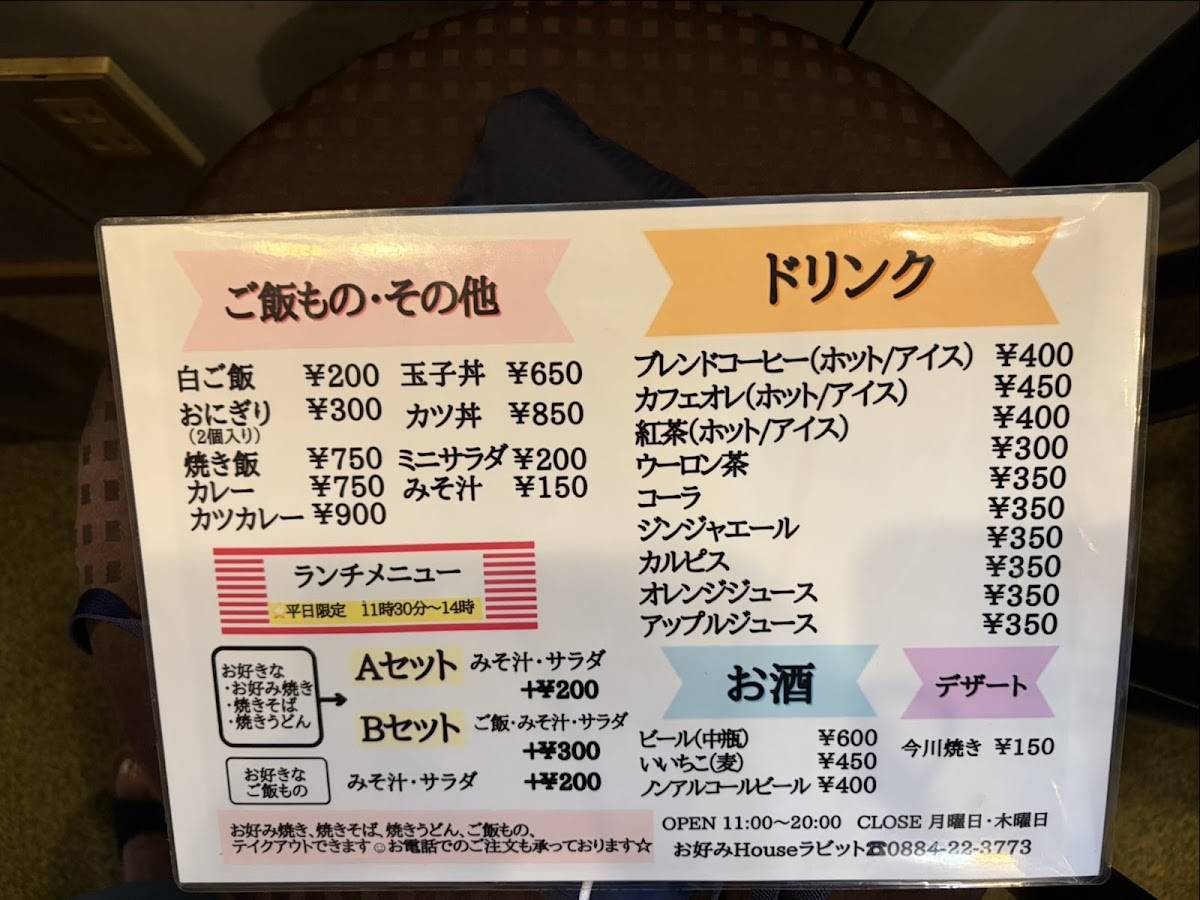 ご飯もの・その他
白ご飯 ¥200
おにぎり ¥300
(2個入り)
焼き飯 ¥750
カレー ¥750
カツカレー ¥900
玉子丼 ¥650
カツ丼 ¥850
ミニサラダ ¥200
みそ汁 ¥150
ランチメニュー
平日限定 11時30分〜14時
お好きな
・お好み焼き
・焼きそば
・焼きうどん
Aセット みそ汁・サラダ
+¥200
Bセット ご飯・みそ汁・サラダ
+¥300
お好きな
ご飯もの
みそ汁・サラダ +¥200
お好み焼き、焼きそば、焼きうどん、ご飯もの、
テイクアウトできます☺お電話でのご注文も承っております☆
ドリンク
ブレンドコーヒー(ホット/アイス) ¥400
カフェオレ(ホット/アイス) ¥450
紅茶(ホット/アイス) ¥400
ウーロン茶 ¥300
コーラ ¥350
ジンジャエール ¥350
カルピス ¥350
オレンジジュース ¥350
アップルジュース ¥350
¥350
お酒
ビール(中瓶) ¥600
いいちこ(麦) ¥450
ノンアルコールビール ¥400
デザート
今川焼き ¥150
OPEN 11:00〜20:00 CLOSE 月曜日・木曜日
お好みHouseラビット☎0884-22-3773